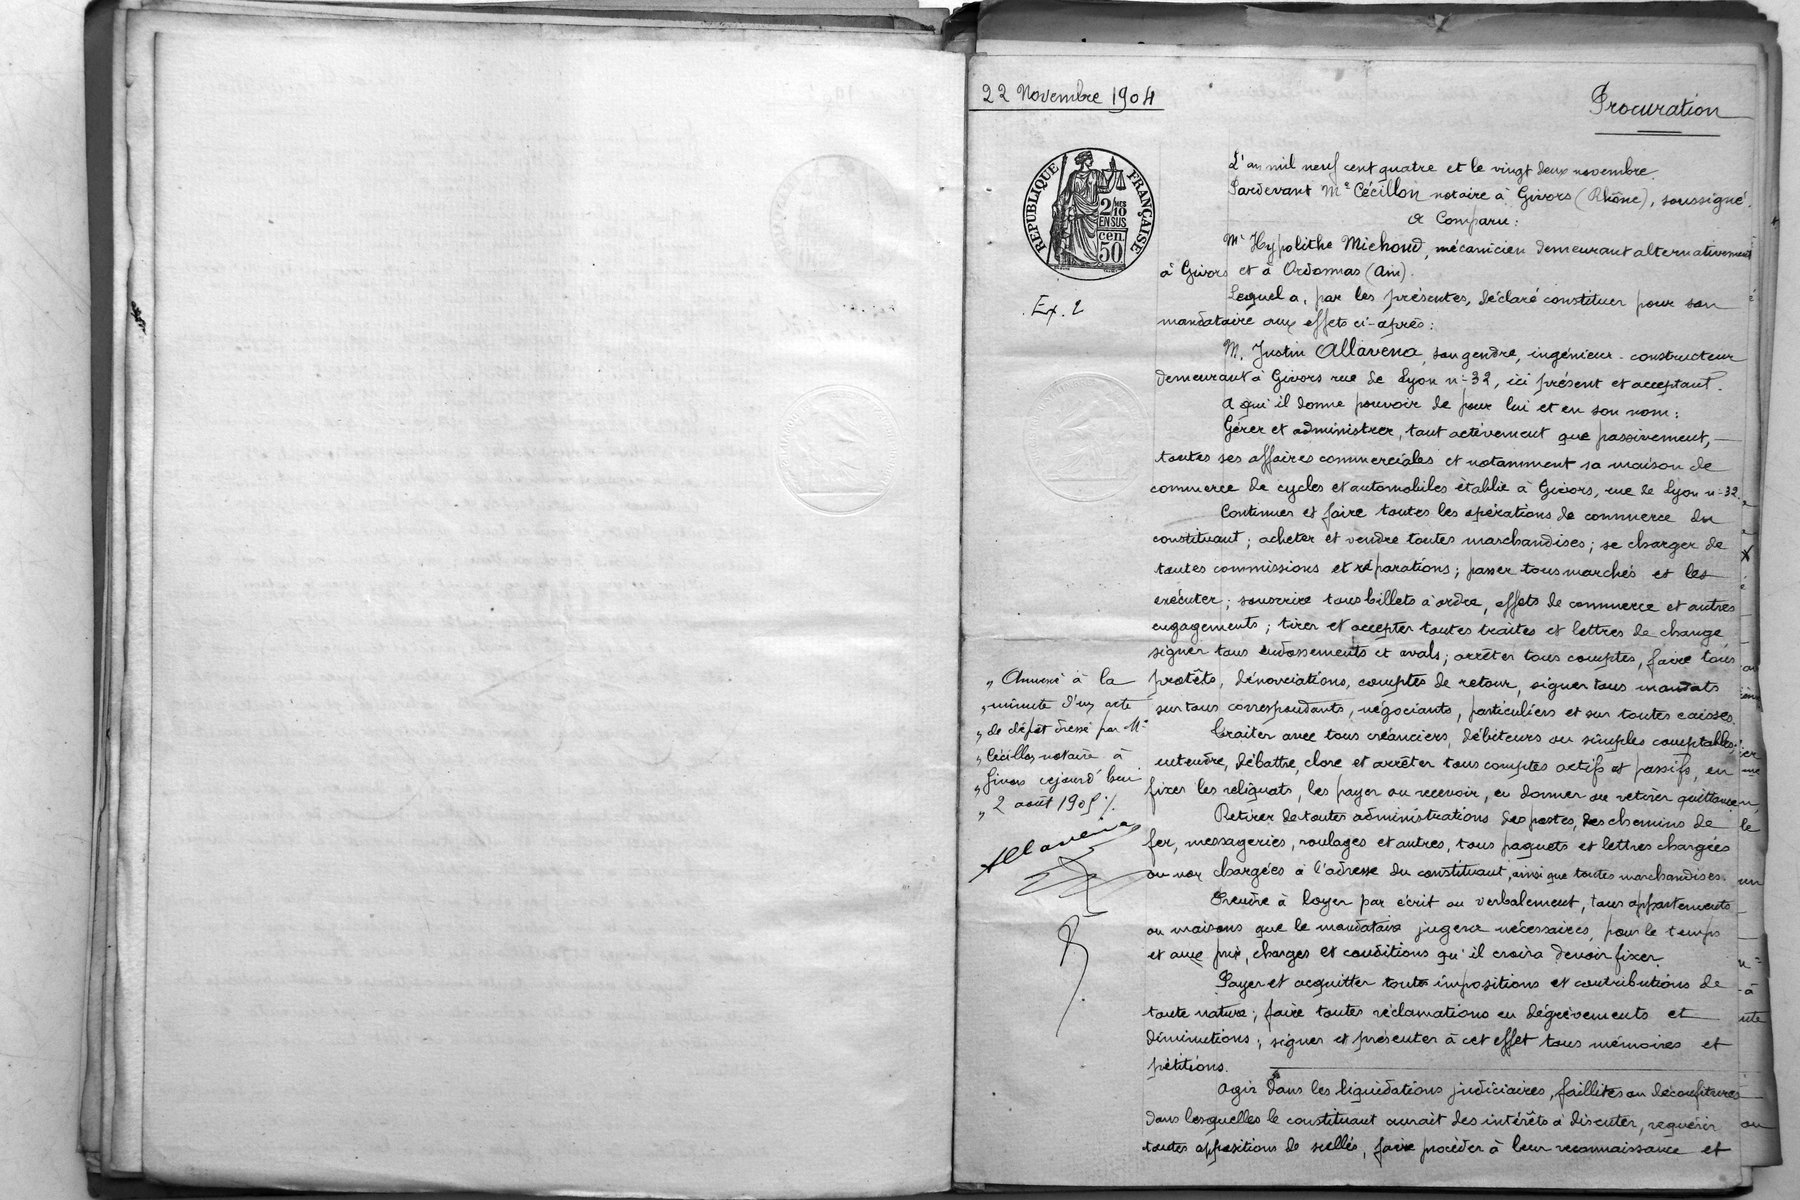 22 Novembre 1904
Procuration
RÉPUBLIQUE FRANÇAISE
2/10
EN SUS
cen.
50
Ex. 2
L'an mil neuf cent quatre et le vingt deux novembre.
Pardevant Me Cécillon notaire à Givors (Rhône), soussigné.
a Comparu:
Mr Hypolithe Michoud, mécanicien demeurant alternativement
à Givors et à (Ain).
Lequel a, par les présentes, déclaré constituer pour son
mandataire aux effets ci-après:
M. Justin Allavena, son gendre, ingénieur-constructeur
demeurant à Givors rue de Lyon n° 32, ici présent et acceptant.
A qui il donne pouvoir de pour lui et en son nom:
Gérer et administrer, tant activement que passivement,
toutes ses affaires commerciales et notamment sa maison de
commerce de cycles et automobiles établie à Givors, rue de Lyon n° 32.
Continuer et faire toutes les opérations de commerce du
constituant; acheter et vendre toutes marchandises; se charger de
toutes commissions et réparations; passer tous marchés et les
exécuter; souscrire tous billets à ordre, effets de commerce et autres
engagements; tirer et accepter toutes traites et lettres de change
signer tous endossements et avals; arrêter tous comptes, faire tous
protêts, dénonciations, comptes de retour, signer tous mandats
sur tous correspondants, négociants, particuliers et sur toutes caisses.
Traiter avec tous créanciers, débiteurs ou simples comptables;
entendre, débattre, clore et arrêter tous comptes actifs et passifs, en
fixer les reliquats, les payer ou recevoir, en donner ou retirer quittance.
Retirer de toutes administrations des postes, des chemins de
fer, messageries, roulages et autres, tous paquets et lettres chargées
ou non chargées à l'adresse du constituant, ainsi que toutes marchandises.
Prendre à loyer par écrit ou verbalement, tous appartements
ou maisons que le mandataire jugera nécessaires, pour le temps
et aux prix, charges et conditions qu'il croira devoir fixer.
Payer et acquitter toutes impositions et contributions de
toute nature; faire toutes réclamations en dégrèvements et
diminutions; signer et présenter à cet effet tous mémoires et
pétitions.
Agir dans les liquidations judiciaires, faillites ou déconfitures
dans lesquelles le constituant aurait des intérêts à discuter, requérir
toutes appositions de scellés, faire procéder à leur reconnaissance et
„ Annexé à la
„ minute d'un acte
„ de dépôt dressé par Me
„ Cécillon notaire à
„ Givors cejourd'hui
„ 2 août 1905 ./.
Allavena